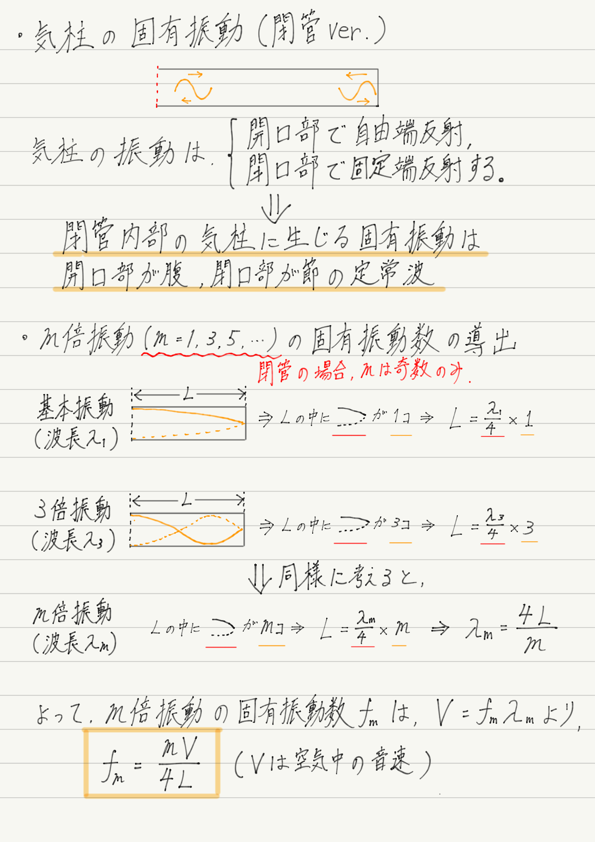 ・気柱の固有振動(閉管ver.)
気柱の振動は、{開口部で自由端反射,
閉口部で固定端反射する。
⇓
閉管内部の気柱に生じる固有振動は
開口部が腹,閉口部が節の定常波
・m倍振動(m=1,3,5,…)の固有振動数の導出
閉管の場合,mは奇数のみ.
L
基本振動
(波長λ₁)
⇒ Lの中に が1コ ⇒ L = λ₁/4 × 1
L
3倍振動
(波長λ₃)
⇒ Lの中に が3コ ⇒ L = λ₃/4 × 3
⇓ 同様に考えると,
m倍振動
(波長λm)
Lの中に がmコ ⇒ L = λm/4 × m ⇒ λm = 4L/m
よって、m倍振動の固有振動数fmは, V=fmλmより,
fm = mV/4L (Vは空気中の音速)